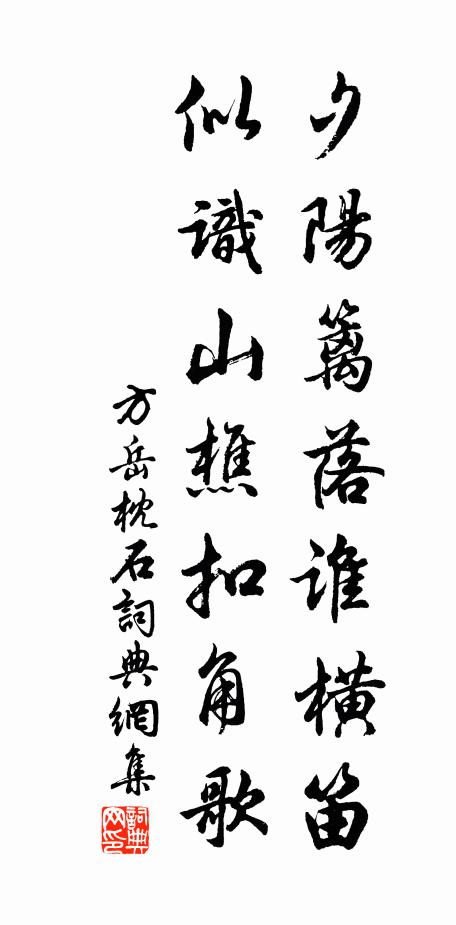 夕陽籬落誰橫笛
似識山樵扣角歌
方岳枕石詞典網集
詞典網印